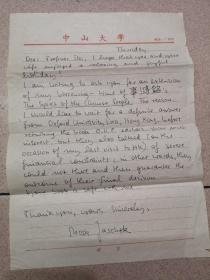 中山大学
Thursday
Dear Professor Shi, I hope that you and your
wife enjoyed a relaxing and joyful
holiday!
I am writing to ask you for an extension
of my borrowing-time of 李澤銘:
The Spirit of the Chinese People. The reason:
I would like to wait for a definite answer
from Oxford University Press, Hong Kong, before
returning the book. O.U.P. editors were most
interest, but they also talked (on the
occasion of my last visit to HK) of severe
financial constraints; in other words, they
could not there and then guarantee the
outcome of their final decision.
Thank you, yours sincerely,